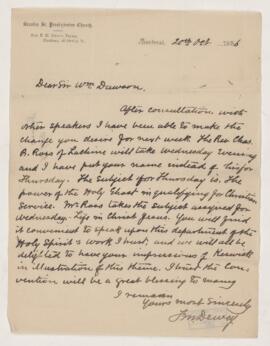 Stanley St. Presbyterian Church.
Rev. F. M. Dewey, Pastor.
Montreal, 20th Oct 1896
Dear Sir Wm Dawson,
After consultation with
other speakers I have been able to make the
change you desire for next week. The Rev Chas.
B. Ross of Lachine will take Wednesday Evening
and I have put your name instead of his for
Thursday. The subject for Thursday is. The
power of the Holy Ghost in qualifying for Christian
Service. Mr Ross takes the subject assigned for
Wednesday. Life in Christ Jesus. You will find
it convenient to speak upon this department of the
Holy Spirit's work I trust, and we will all be
delighted to have your impressions of Keswick
in illustration of this theme. I trust the Con-
vention will be a great blessing to many
I remain
Yours most Sincerely
F M Dewey